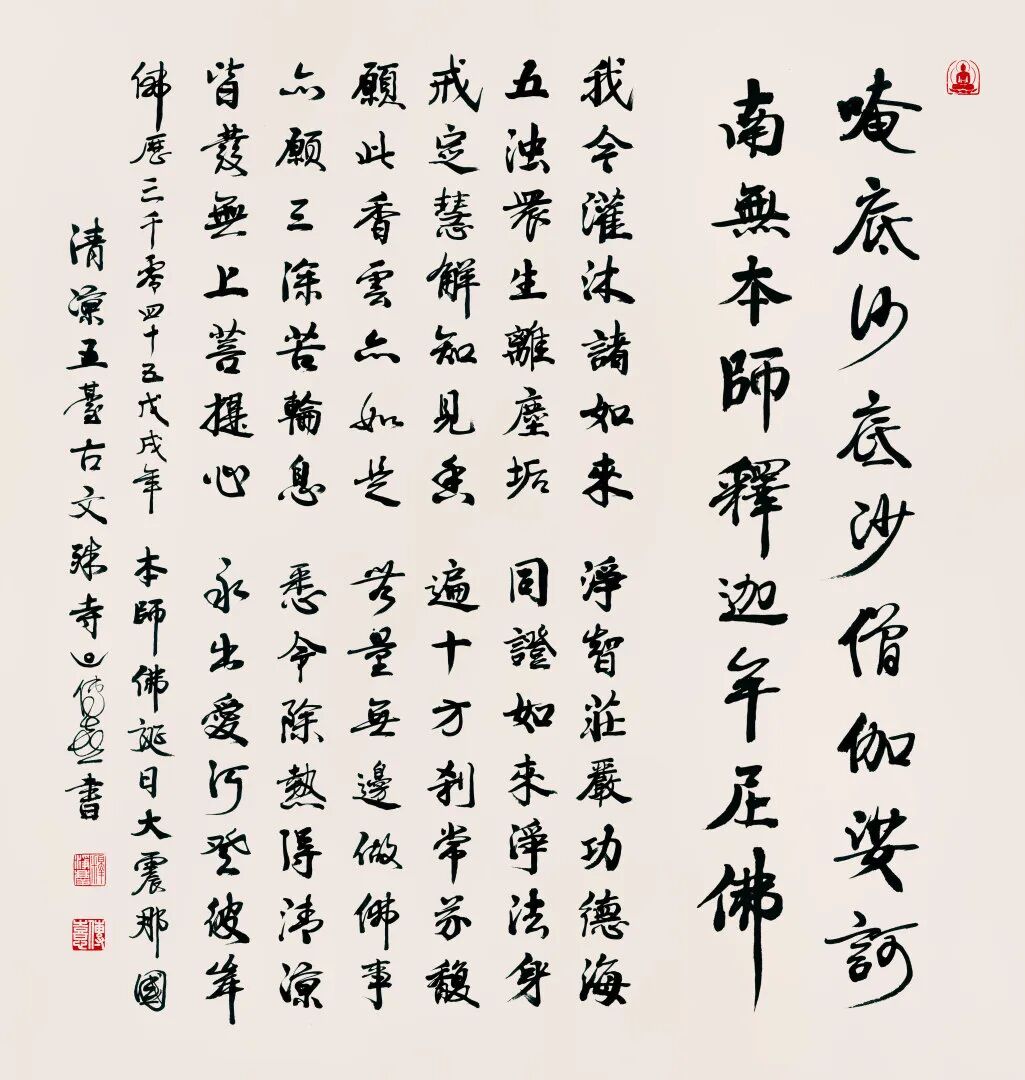 唵底沙底沙僧伽娑訶
南無本師釋迦牟尼佛
我今灌沐諸如來 淨智莊嚴功德海
五浊衆生離塵垢 同證如來淨法身
戒定慧解知見香 遍十方刹常芬馥
願此香雲亦如是 無量無邊做佛事
亦願三涂苦輪息 悉令除熱得清涼
皆發無上菩提心 永出愛河登彼岸
佛歷三千零四十五戊戌年 本師佛誕日大震那國
清凉五臺古文殊寺傳喜書